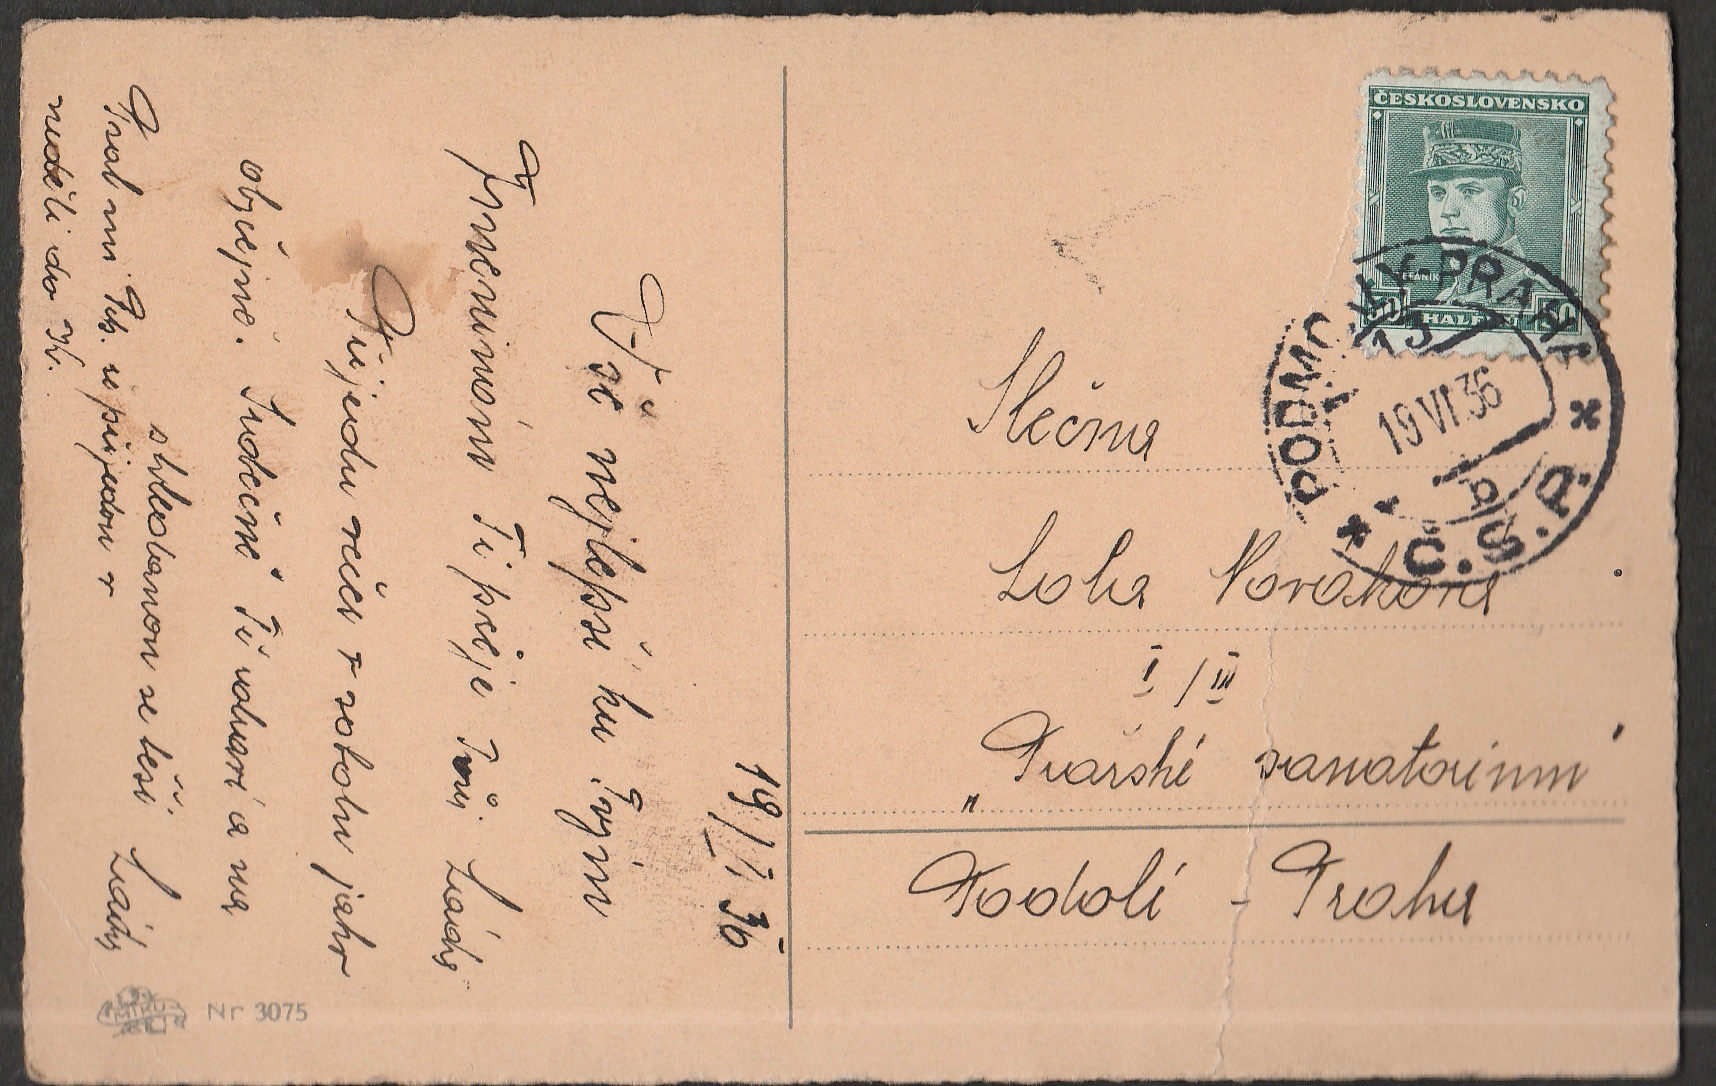 19/VI 36
Vše nejlepší ku Tvým
Jmeninám Ti přeje Tvůj Láďa.
Přijedu večer v sobotu jak
obyčejně. Srdečně Tě a na
shledanou se těší Láďa
Psal mi že přijedou v
neděli do
Nr. 3075
ČESKOSLOVENSKO
50 HALÉŘŮ 50
PODMOKLY-PRAHA
19 VI 36
b
Č.S.P.
Slečna
Nováková
I/III
„Pražské sanatorium"
Podolí - Praha